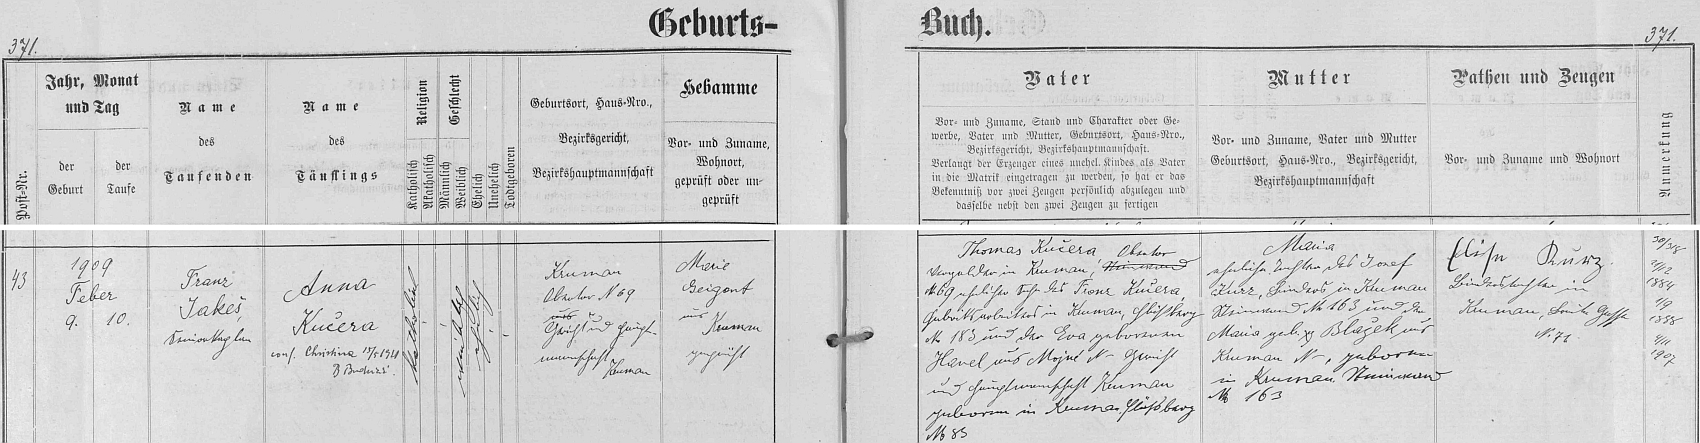 Geburts-
Buch.
371.
371.
Post-Nr.
Jahr, Monat
und Tag
der
Geburt
der
Taufe
Name
des
Taufenden
Name
des
Täuflings
Religion
Katholisch
Akatholisch
Geschlecht
Männlich
Weiblich
Ehelich
Unehelich
Todtgeboren
Geburtsort, Haus-Nro.,
Bezirksgericht,
Bezirkshauptmannschaft
Hebamme
Vor- und Zuname,
Wohnort,
geprüft oder un-
geprüft
Vater
Vor- und Zuname, Stand und Charakter oder Ge-
werbe, Vater und Mutter, Geburtsort, Haus-Nro.,
Bezirksgericht, Bezirkshauptmannschaft.
Verlangt der Erzeuger eines unehel. Kindes als Vater
in die Matrik eingetragen zu werden, so hat er das
Bekenntniß vor zwei Zeugen persönlich abzulegen und
dasselbe nebst den zwei Zeugen zu fertigen
Mutter
Vor- und Zuname, Vater und Mutter
Geburtsort, Haus-Nro., Bezirksgericht,
Bezirkshauptmannschaft
Pathen und Zeugen
Vor- und Zuname und Wohnort
Anmerkung
43
1909
Feber
9. 10.
Franz
Jakeš
Anna
Kučera
conf. Christina
katholisch
weiblich
ehelich
Krumau
Obertor N 69
Gericht und Haupt-
mannschaft
Krumau
Marie
Geigant
aus
Krumau
geprüft
Thomas Kučera, Obertor
Vergolder in Krumau,
N 69 ehelicher Sohn des Franz Kučera,
Fabriksarbeiters in Krumau, Flößberg
N 183 und der Eva geborenen
Havel aus Mojné N- Gericht
und Hauptmannschaft Krumau
geboren in Krumau, Flößberg
№ 83
Maria
eheliche Tochter des Josef
Kurz, Binders in Krumau
№ 163 und der
Maria geb. Blažek aus
Krumau N-, geboren
in Krumau
№ 163
Elise Kurz
Binderstochter in
Krumau, Gasse
N. 71
30/3/8
1884
1/9
1888
4/11
1907